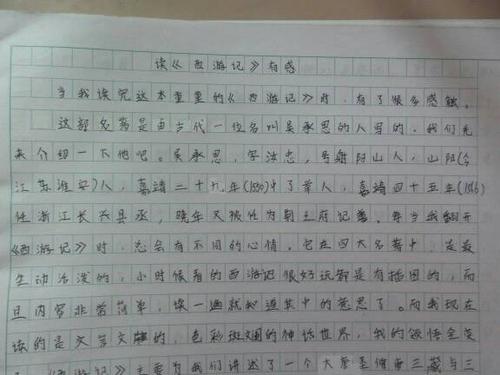 读《西游记》有感
当我读完这本重重的《西游记》时，有了很多感触。
这部名著是由古代一位名叫吴承恩的人写的，我们先
来介绍一下他吧。吴承恩，字汝忠，号射阳山人，山阳(今
江苏淮安)人，嘉靖二十九年(1550)中了举人，嘉靖四十五年(1566)
任浙江长兴县丞，晚年又被任为荆王府记善。每当我翻开
《西游记》时，总会有不同的心情。它在四大名著中，是最
生动活泼的，小时候看的西游记很好玩都是有插图的，而
且内容非常简单，读一遍就知道其中的意思了。而我现在
读的是文言文的，色彩斑斓的神话世界，我的领悟全
《西游记》主要为我们讲述了一个大唐圣僧唐三藏与三